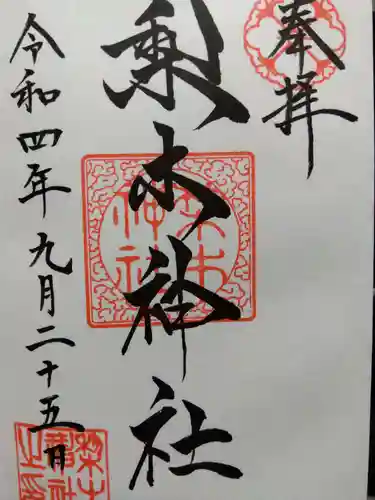 奉拝
梨木神社
梨木
神社
令和四年九月二十五日
梨木
神社
之印